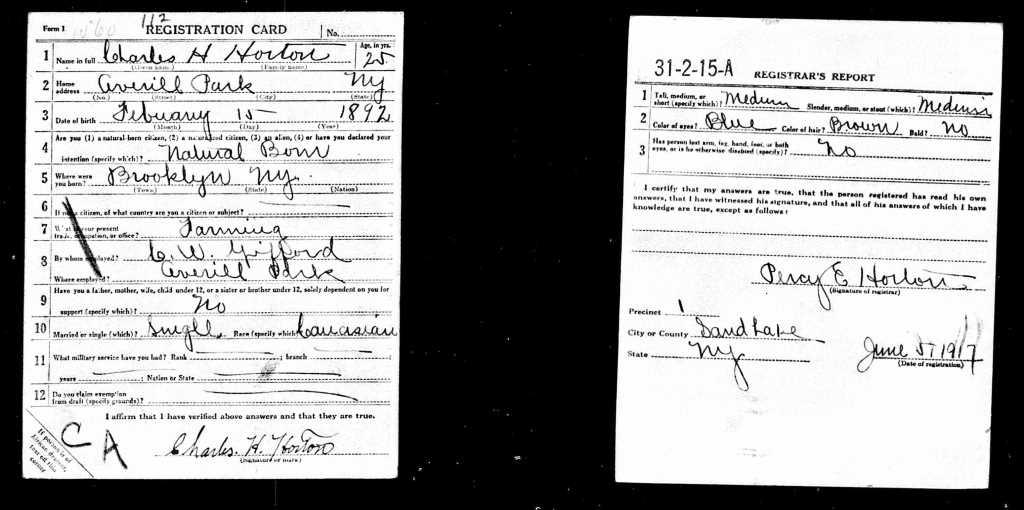 Form 1 1560 112 REGISTRATION CARD No.
1 Name in full Charles H Horton Age, in yrs. 25
(Given name) (Family name)
2 Home address Averill Park NY
(No.) (Street) (City) (State)
3 Date of birth Febuary 15 1892
(Month) (Day) (Year)
4 Are you (1) a natural-born citizen, (2) a naturalized citizen, (3) an alien, (4) or have you declared your
intention (specify which)? Natural Born
5 Where were you born? Brooklyn NY.
(Town) (State) (Nation)
6 If not a citizen, of what country are you a citizen or subject?
7 What is your present trade, occupation, or office? Farming
8 By whom employed? C. W. Gifford
Where employed? Averill Park
9 Have you a father, mother, wife, child under 12, or a sister or brother under 12, solely dependent on you for
support (specify which)? No
10 Married or single (which)? Single Race (specify which)? Caucasian
11 What military service have you had? Rank ; branch
years ; Nation or State
12 Do you claim exemption from draft (specify grounds)?
I affirm that I have verified above answers and that they are true.
C A
Charles. H. Horton
(Signature or mark)
If person is of African descent, tear off this corner
31-2-15-A REGISTRAR'S REPORT
1 Tall, medium, or short (specify which)? Medium Slender, medium, or stout (which)? Medium
2 Color of eyes? Blue Color of hair? Brown Bald? No
3 Has person lost arm, leg, hand, foot, or both eyes, or is he otherwise disabled (specify)? No
I certify that my answers are true, that the person registered has read his own
answers, that I have witnessed his signature, and that all of his answers of which I have
knowledge are true, except as follows:
Percy E Horton
(Signature of registrar)
Precinct 1
City or County Sand Lake
State NY
June 5, 1917
(Date of registration)